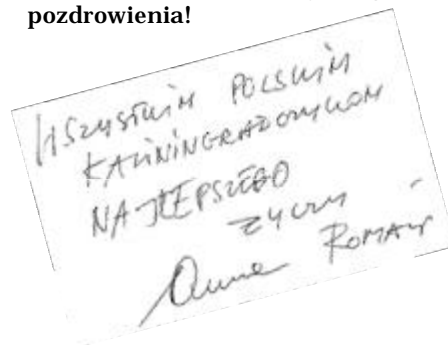 pozdrowienia!
WSZYSTKIM POLSKIM
KALININGRADCZYKOM
NAJLEPSZEGO
ŻYCZY
Anna ROMAN